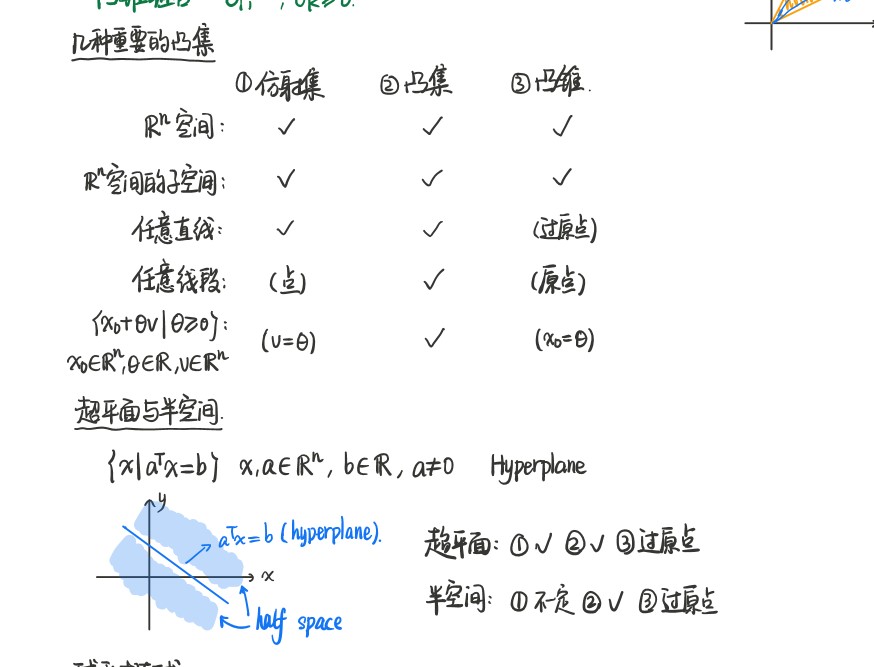 几种重要的凸集
①仿射集 ②凸集 ③凸锥.
ℝⁿ空间: ✓ ✓ ✓
ℝⁿ空间的子空间: ✓ ✓ ✓
任意直线: ✓ ✓ (过原点)
任意线段: (点) ✓ (原点)
{x₀+θv|θ≥0}:
x₀∈ℝⁿ,θ∈ℝ,v∈ℝⁿ (v=θ) ✓ (x₀=θ)
超平面与半空间.
{x|aᵀx=b} x,a∈ℝⁿ, b∈ℝ, a≠0 Hyperplane
y
aᵀx=b (hyperplane).
x
half space
超平面: ①✓ ②✓ ③过原点
半空间: ①不一定 ②✓ ③过原点